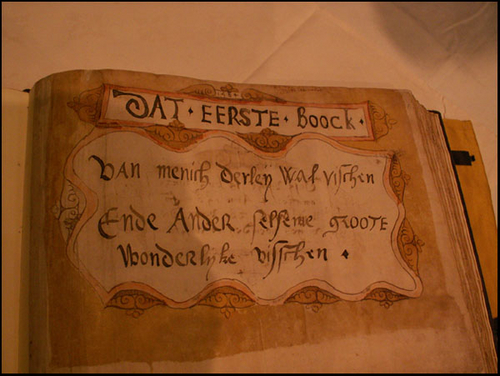 DAT · EERSTE · Boock ·
VAN menich derley WAl vischen
Ende Ander selsame GROOTE
Wonderlyke visschen ·